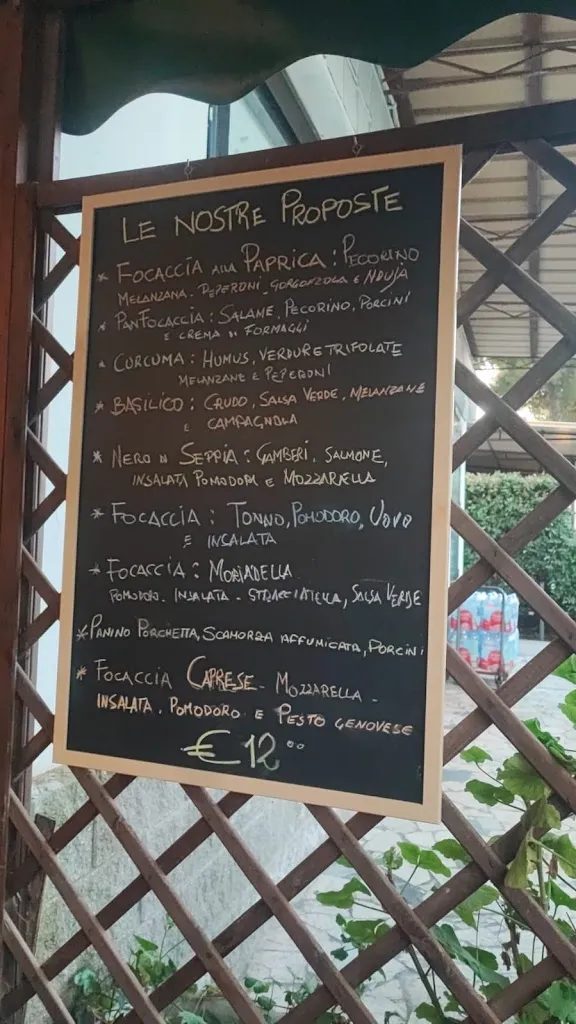 LE NOSTRE PROPOSTE
* FOCACCIA ALLA PAPRICA: PECORINO
MELANZANA. PEPERONI. GORGONZOLA E NDUJA
* PANFOCACCIA: SALAME, PECORINO, PORCINI
E CREMA DI FORMAGGI
* CURCUMA: HUMUS, VERDURE TRIFOLATE
MELANZANE E PEPERONI
* BASILICO: CRUDO, SALSA VERDE, MELANZANE
E CAMPAGNOLA
* NERO DI SEPPIA: GAMBERI, SALMONE,
INSALATA POMODORI E MOZZARELLA
* FOCACCIA: TONNO, POMODORO, UOVO
E INSALATA
* FOCACCIA: MORTADELLA
POMODORI. INSALATA - STRACCIATELLA, SALSA VERDE
* PANINO PORCHETTA, SCAMORZA AFFUMICATA, PORCINI
* FOCACCIA CAPRESE - MOZZARELLA -
INSALATA. POMODORO E PESTO GENOVESE
€ 12.00